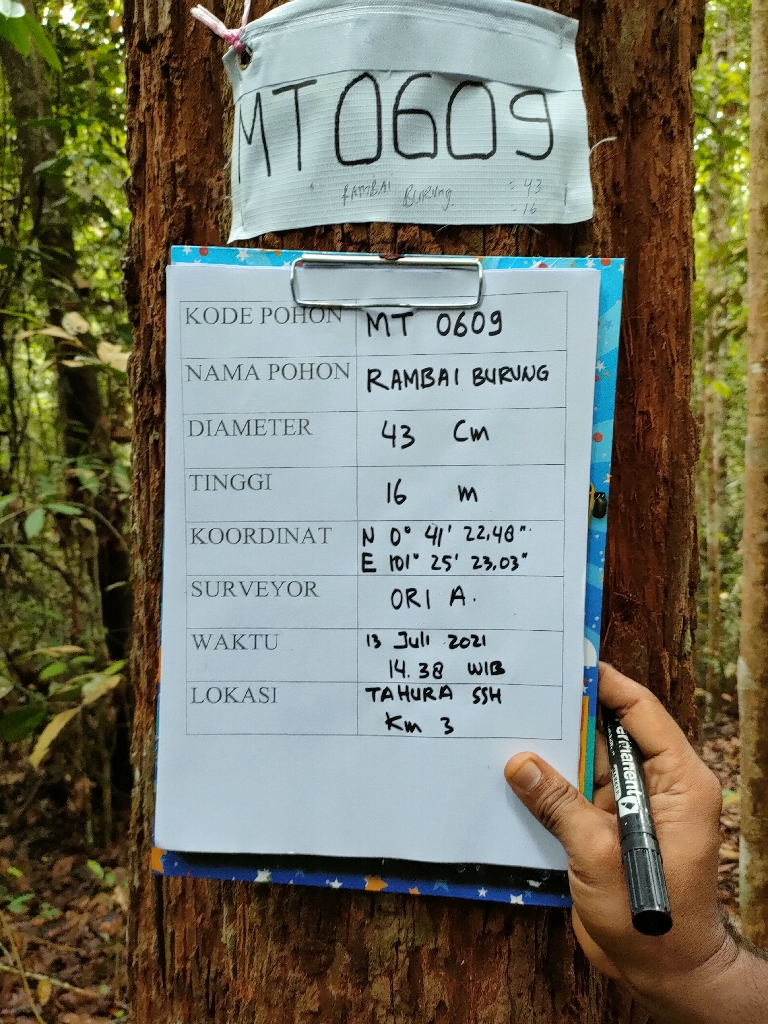 MT0609
RAMBAI BURUNG : 43
: 16
KODE POHON MT 0609
NAMA POHON RAMBAI BURUNG
DIAMETER 43 Cm
TINGGI 16 m
KOORDINAT N 0° 41' 22,48"
E 101° 25' 23,03"
SURVEYOR ORI A.
WAKTU 13 Juli 2021
14.38 WIB
LOKASI TAHURA SSH
Km 3
ermanent